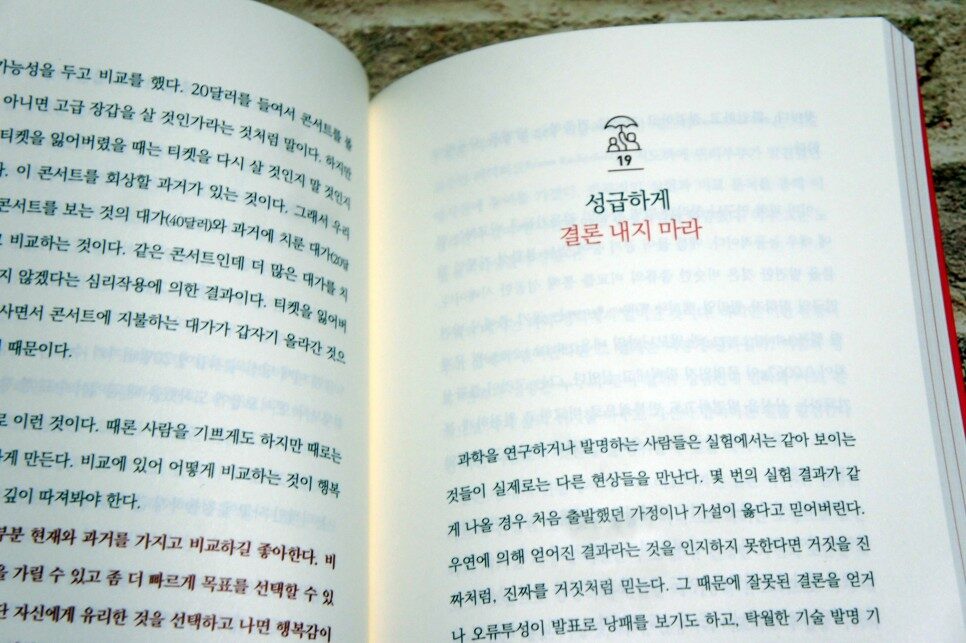 가능성을 두고 비교를 했다. 20달러를 들여서 콘서트를 볼
아니면 고급 장갑을 살 것인가라는 것처럼 말이다. 하지만
티켓을 잃어버렸을 때는 티켓을 다시 살 것인지 말 것인지
이 콘서트를 회상할 과거가 있는 것이다. 그래서 우리
콘서트를 보는 것의 대가(40달러)와 과거에 치룬 대가(20달
비교하는 것이다. 같은 콘서트인데 더 많은 대가를 치
지 않겠다는 심리작용에 의한 결과이다. 티켓을 잃어버
사면서 콘서트에 지불하는 대가가 갑자기 올라간 것으
때문이다.
로 이런 것이다. 때론 사람을 기쁘게도 하지만 때로는
하게 만든다. 비교에 있어 어떻게 비교하는 것이 행복
깊이 따져봐야 한다.
부분 현재와 과거를 가지고 비교하길 좋아한다. 비
을 가릴 수 있고 좀 더 빠르게 목표를 선택할 수 있
단 자신에게 유리한 것을 선택하고 나면 행복감이
19
성급하게
결론 내지 마라
과학을 연구하거나 발명하는 사람들은 실험에서는 같아 보이는
것들이 실제로는 다른 현상들을 만난다. 몇 번의 실험 결과가 같
게 나올 경우 처음 출발했던 가정이나 가설이 옳다고 믿어버린다.
우연에 의해 얻어진 결과라는 것을 인지하지 못한다면 거짓을 진
짜처럼, 진짜를 거짓처럼 믿는다. 그 때문에 잘못된 결론을 얻거
나 오류투성이 발표로 낭패를 보기도 하고, 탁월한 기술 발명 기